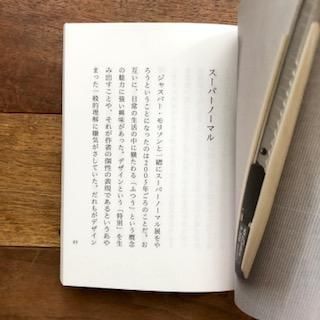 スーパーノーマル
ジャスパー・モリソンと一緒にスーパーノーマル展をや
ろうということになったのは2005年ごろのことだ。お
互いに、日常の生活の中に横たわる「ふつう」という概念
の魅力に強い興味があった。デザインという「特別」を生
み出すことや、それが作者の個性の表現であるというあや
まった一般的理解に嫌気がさしていた。だれもがデザイン